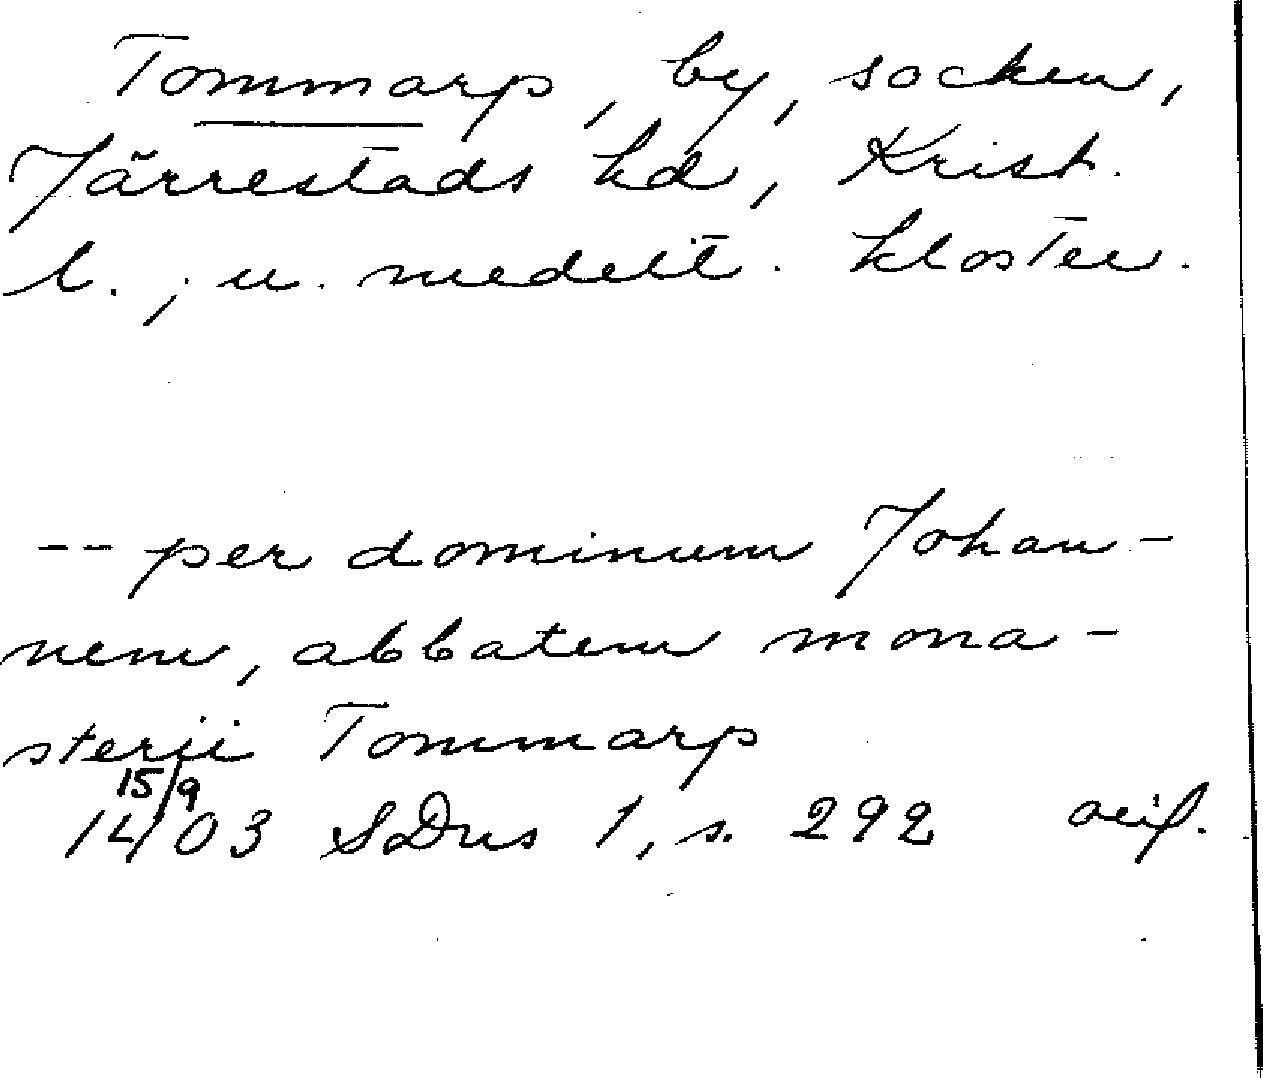 Tommarp, by, socken,
Järrestads hd, Krist.
l.; u. medelt. kloster.
-- per dominum Johan-
nem, abbatem mona-
sterii Tommarp
15/9
1403 SDns 1, s. 292 avs.